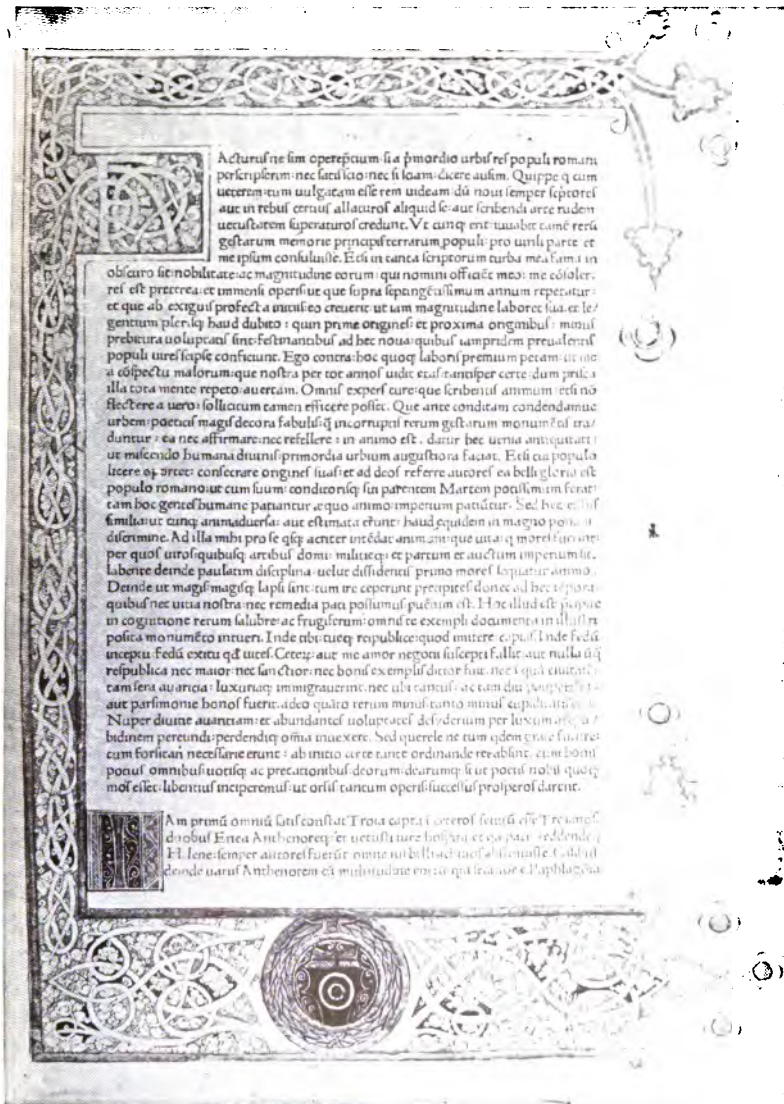 FActurus ne sim operep̄cium si a p̄mordio urbis res populi romani
perscripserim: nec satis scio: nec si sciam: dicere ausim. Quippe q cum
ueterem: tum uulgatam esse rem uideam: dū noui semper sc̄ptores
aut in rebus certius allaturos aliquid se: aut scribendi arte rudem
uetustatem superaturos credunt. Vt cunq erit: iuuabit tamē rerū
gestarum memorie principis terrarum populi: pro uirili parte et
me ipsum consuluisse. Et si in tanta scriptorum turba mea fama in
obscuro sit: nobilitate: ac magnitudine eorum: qui nomini officiēt meo: me cōsoler.
res est preterea: et immensi operis: ut que supra septingētissimum annum repetatur:
et que ab exiguis profecta initiis: eo creuerit: ut iam magnitudine laboret sua. et le/
gentium plerisq haud dubito: quin prime origines: et proxima originibus: minus
prebitura uoluptatis sint: festinantibus ad hec noua: quibus iampridem preualentis
populi uires se ipse conficiunt. Ego contra: hoc quoq laboris premium petam: ut me
a cōspectu malorum: que nostra per tot annos uidit etas: tantisper certe: dum prisca
illa tota mente repeto: auertam. Omnis expers cure: que scribentis animum: etsi nō
flectere a uero: sollicitum tamen efficere posset. Que ante conditam condendamue
urbem: poeticis magis decora fabulis: q̄ incorruptis rerum gestarum monumētis tra/
duntur: ea nec affirmare: nec refellere: in animo est. datur hec uenia antiquitati:
ut miscendo humana diuinis: primordia urbium augustiora faciat. Et si cui populo
licere oportet: consecrare origines suas: et ad deos referre autores: ea belli gloria est
populo romano: ut cum suum: conditorisq sui parentem Martem potissimum ferat:
tam hoc gentes humane patiantur æquo animo: imperium patiūtur. Sed hec et his
similia: ut cunq animaduersa: aut estimata erunt: haud equidem in magno ponam
discrimine. Ad illa mihi pro se q̄sq acriter intēdat animum: que uita: q mores fuerint:
per quos uiros: quibusq artibus domi: militieq: et partum et auctum imperium sit.
labente deinde paulatim disciplina: uelut dissidentis primo mores sequatur animo.
Deinde ut magis magisq lapsi sint: tum ire ceperunt precipites: donec ad hec tēpora:
quibus nec uitia nostra: nec remedia pati possumus puētum est. Hoc illud est precipue
in cognitione rerum salubre: ac frugiferum: omnis te exempli documenta in illustri
posita monumēto intueri. Inde tibi: tueq reipublice: quod imitere capias. Inde fedū
inceptu: fedū exitu qd uites. Ceteꝝ: aut me amor negotii suscepti fallit: aut nulla ūq̄
respublica nec maior: nec sanctior: nec bonis exemplis ditior fuit. nec in quā ciuitatē
tam sera auaritia: luxuriaq immigrauerint. nec ubi tantus: ac tam diu paupertati:
aut parsimonie bonos fuerit. adeo quāto rerum minus: tanto minus cupiditatis
Nuper diuitie auaritiam: et abundantes uoluptates desiderium per luxum atq li/
bidinem pereundi: perdendiq omīa inuexere. Sed querele ne tum qdem grate future:
cum forsitan necessarie erunt: ab initio certe tante ordiende rei absint. cum bonis
potius omnibus: uotisq: ac precationibus deorum: dearumq: si ut poetis nobis quoq
mos esset: libentius inciperemus: ut orsis tantum operis: successus prosperos darent.
IAm primū omniū satis constat Troia capta: in ceteros seuitū esse Troianos.
duobus Enea Anthenoreq: et uetusti iure hospitii: et quia pacis reddendeq
Helene: semper autores fuerūt omne ius belli achiuos abstinuisse. Casibus
deinde uariis Anthenorem cū multitudine enetū: qui seditione e Paphlagōia